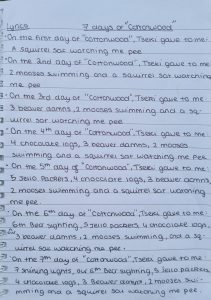 Lyrics 7 days of "Cottonwood"
On the first day of "Cottonwood", Tseki gave to me:
A squirrel sar watching me pee.
On the 2nd day of "Cottonwood", Tseki gave to me:
2 mooses swimming and a squirrel sar watching
me pee.
On the 3rd day of "Cottonwood", Tseki gave to me:
3 beaver damns, 2 mooses swimming and a sq-
uirrel sar watching me pee.
On the 4th day of "Cottonwood", Tseki gave to me:
4 chocolate logs, 3 beaver damns, 2 mooses
swimming and a squirrel sar watching me pee.
On the 5th day of "Cottonwood", Tseki gave to me:
5 Jello packers, 4 chocolate logs, 3 beaver damns
2 mooses swimming and a squirrel sar watching
me pee.
On the 6th day of "Cottonwood", Tseki gave to me:
6th Bear sighting, 5 Jello packers, 4 chocolate logs,
3 beaver damns, 2 mooses swimming, and a sq-
uirrel sar watching me pee.
On the 7th day of "Cottonwood", Tseki gave to me:
7 shining lights, our 6th Bear sighting, 5 Jello packers
4 chocolate logs, 3 Beaver damns, 2 mooses swi-
mming and a squirrel sar watching me pee